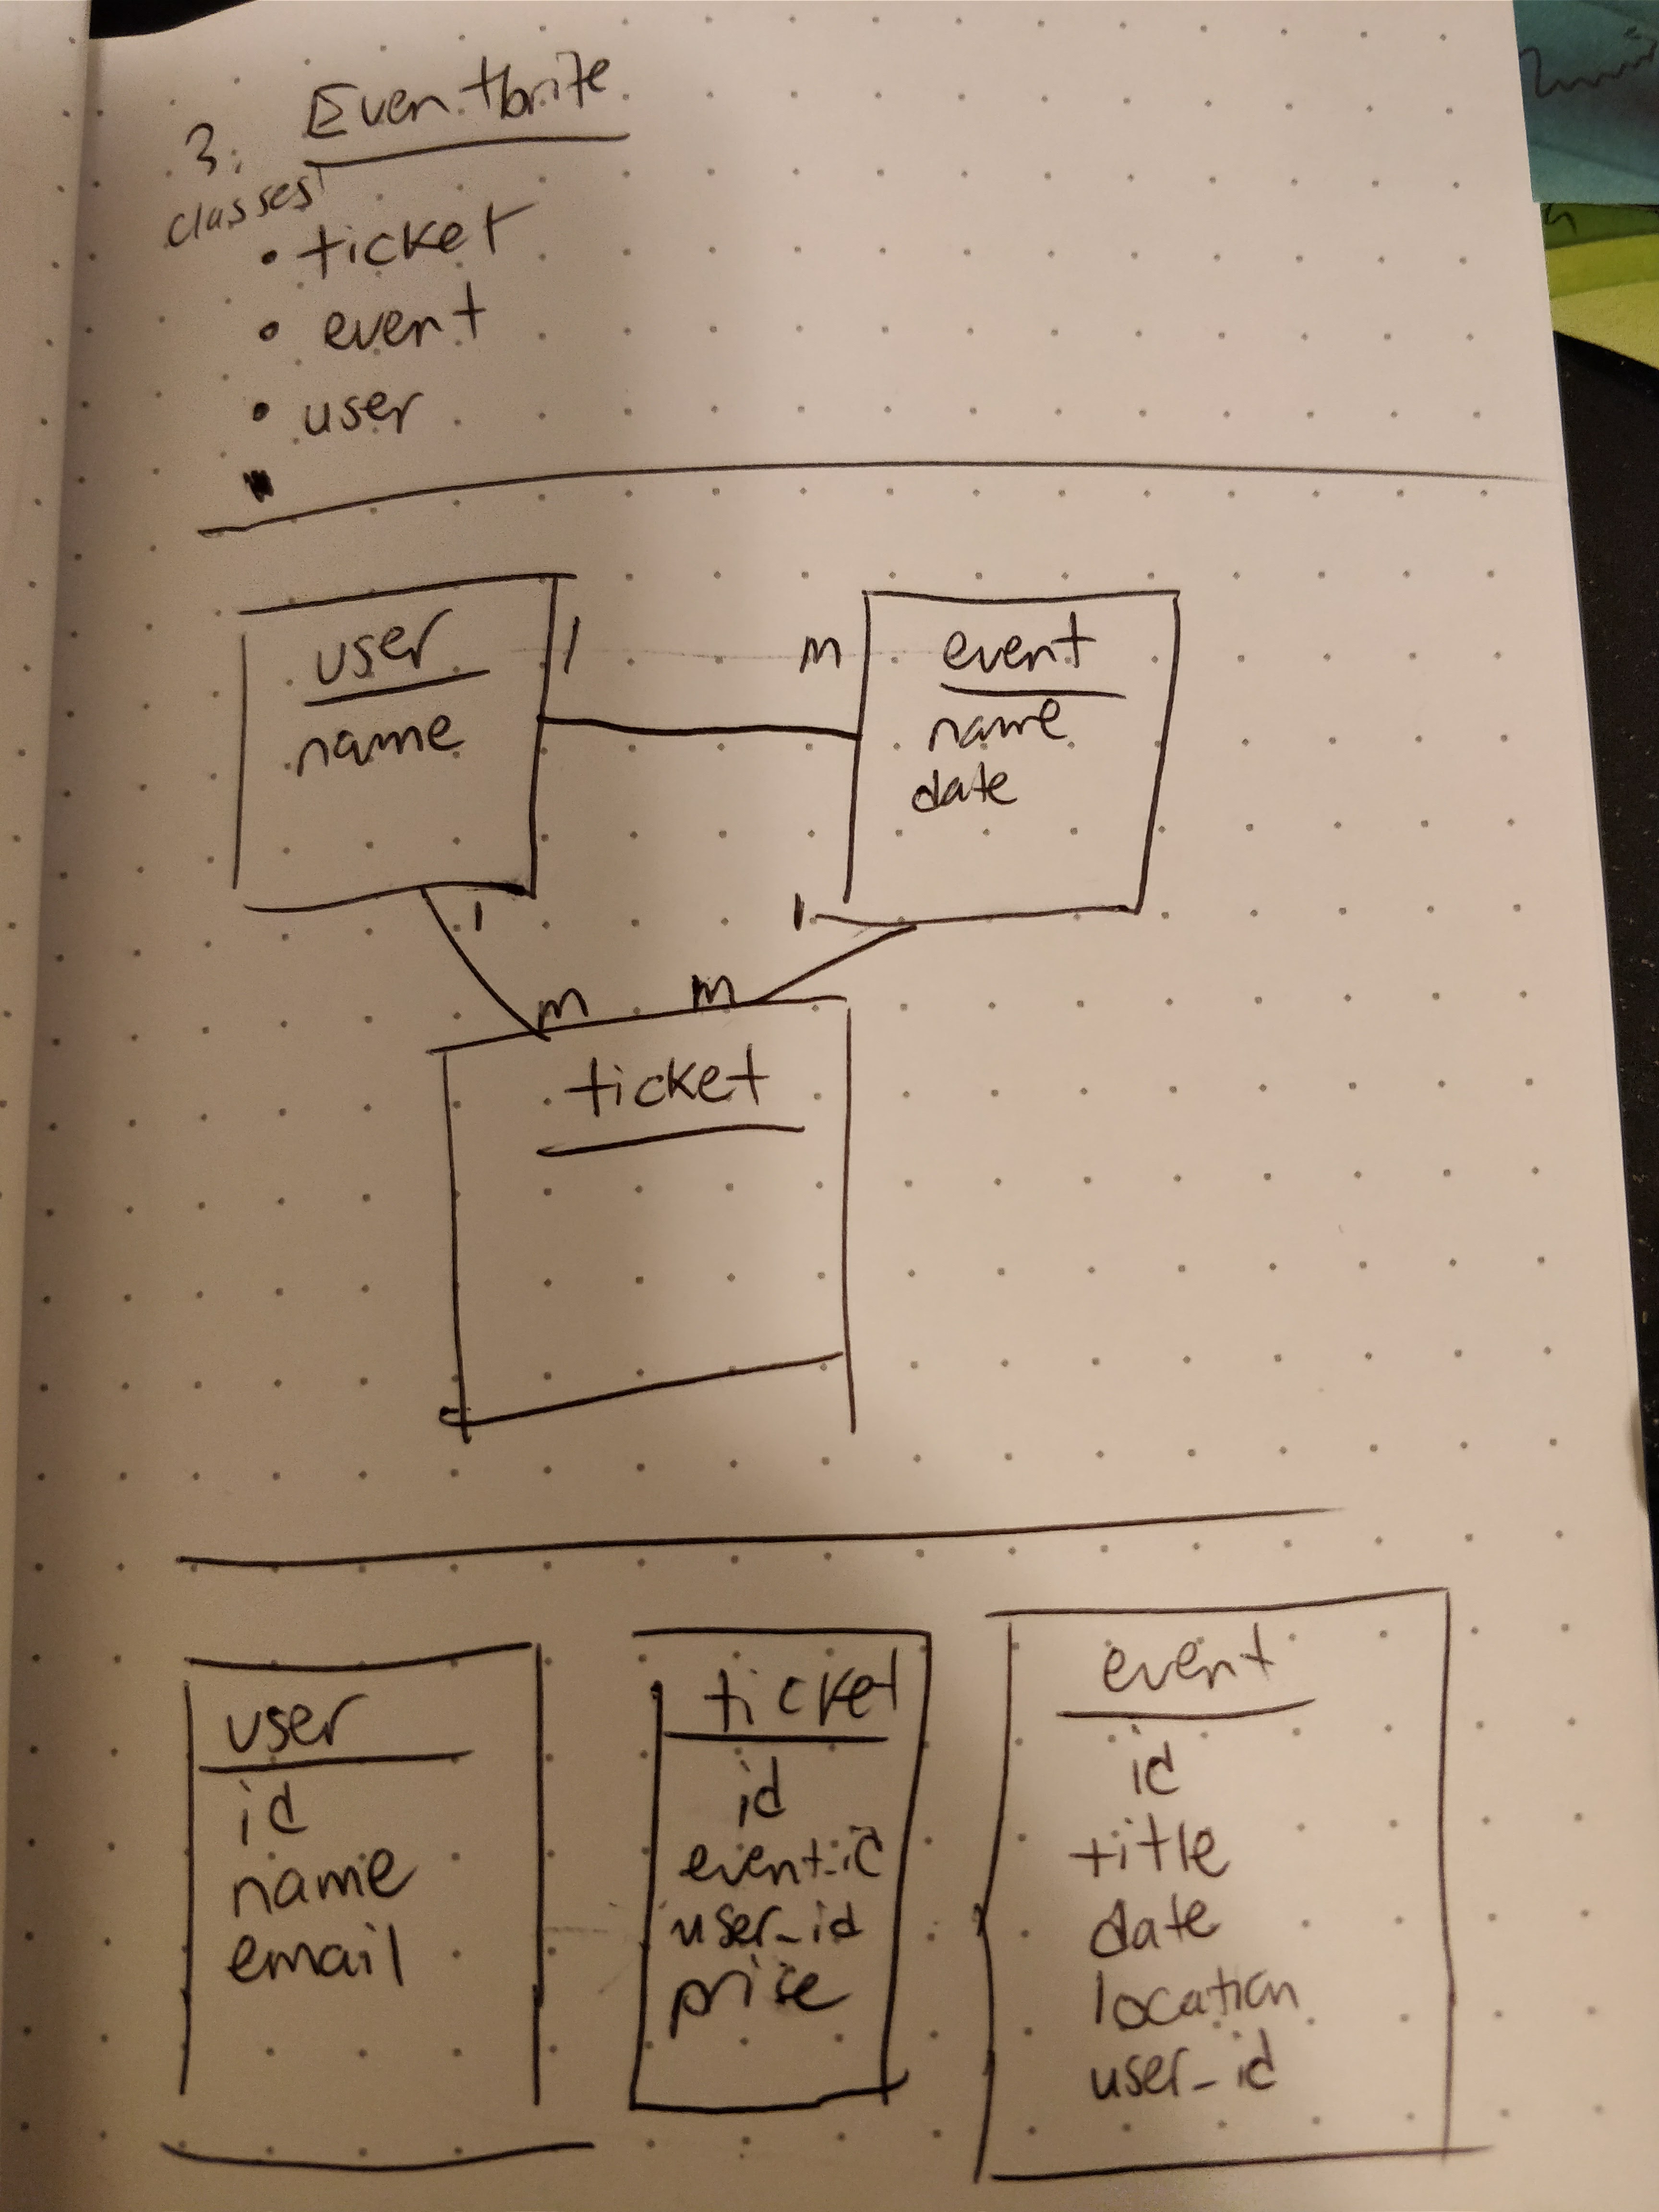 3. Eventbrite
classes
• ticket
• event
• user
user
name
1
m
event
name
date
1
1
m
m
ticket
user
id
name
email
ticket
id
event_id
user_id
price
event
id
title
date
location
user_id